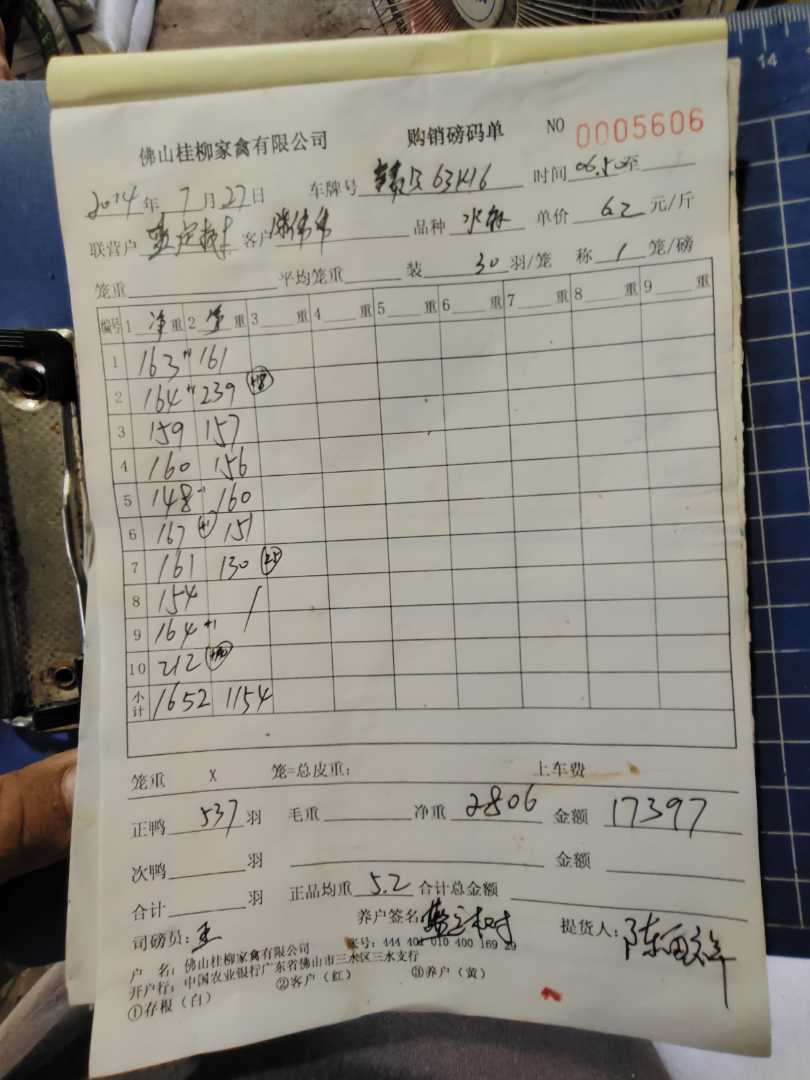 佛山桂柳家禽有限公司 购销磅码单 NO 0005606
2014年7月27日 车牌号 63K16 时间 06.50至
联营户 客户 品种 水 单价 6.2 元/斤
笼重 平均笼重 装 30 羽/笼 称 1 笼/磅
编号 1 净重 2 净重 3 重 4 重 5 重 6 重 7 重 8 重 9 重
1 163 +1 161
2 164 +1 239 +8
3 159 157
4 160 156
5 148 -1 160
6 167 +1 151
7 161 130
8 154 /
9 164 +1
10 212
小计 1652 1154
笼重 X 笼=总皮重: 上车费
正鸭 537 羽 毛重 净重 2806 金额 17397
次鸭 羽 金额
合计 羽 正品均重 5.2 合计总金额
司磅员: 王 养户签名 提货人: 陈
户 名: 佛山桂柳家禽有限公司 账号: 444 401 010 400 169 29
开户行: 中国农业银行广东省佛山市三水区三水支行
①存根(白) ②客户(红) ③养户(黄)
14